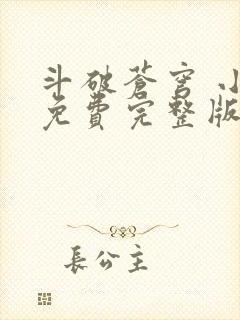 斗破蒼穹 小
免費完整版
長公主